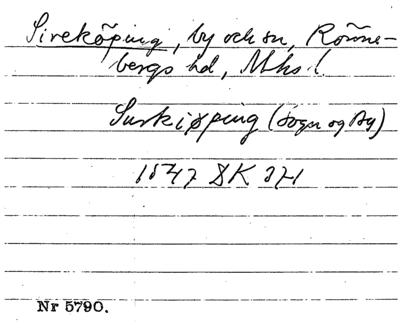 Sireköping, by och sn, Rönne-
bergs hd, Mhs l
Surkiøping (Sogn og By)
1547 DK
Nr 5790.